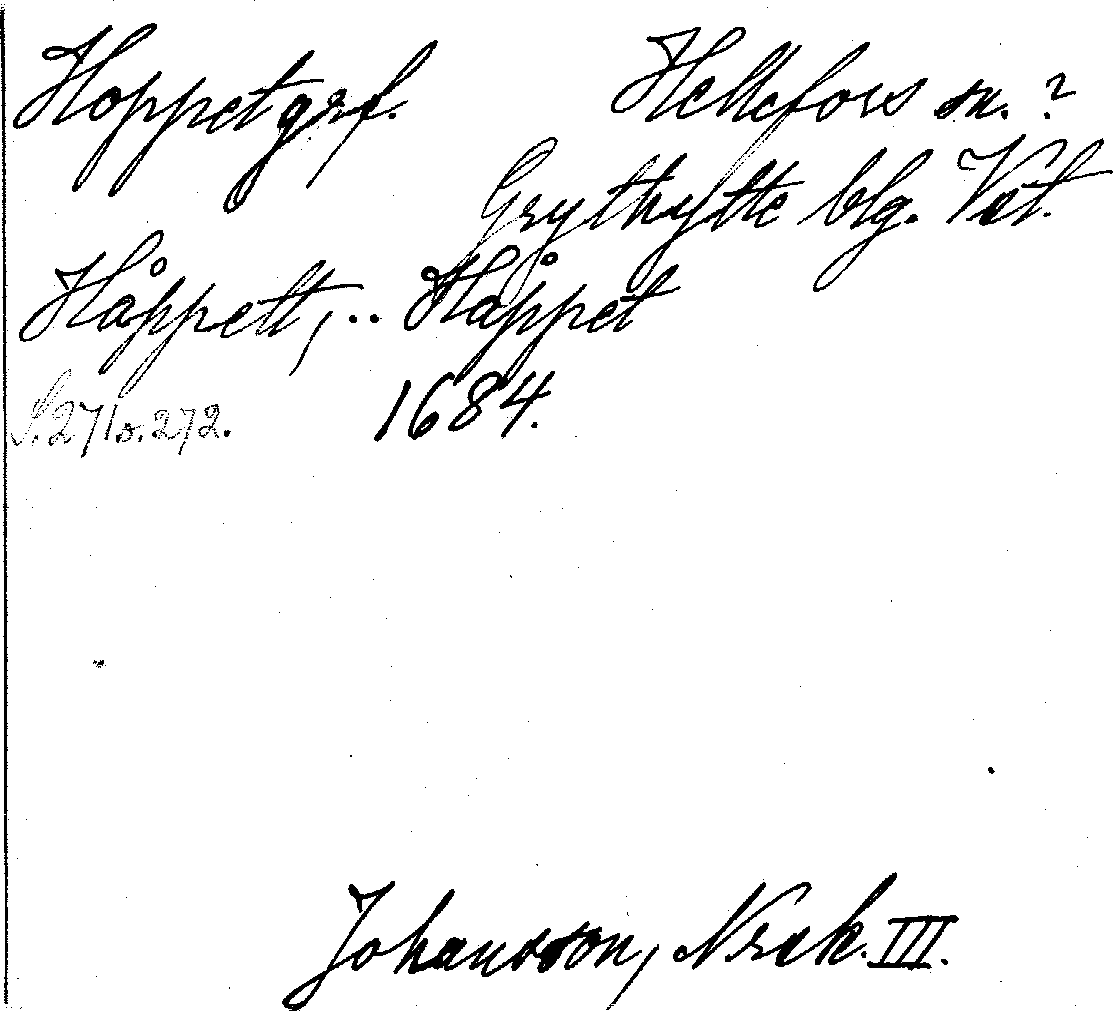 Hoppet grf. Hellefors sn. ?
Grythytte blg. Vstl.
Håppett, .. Håppet
S. 271 o. 272. 1684.
Johansson, Nrsk. III.